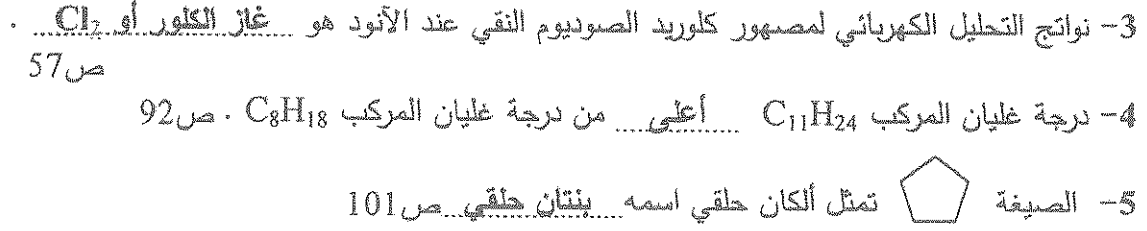 3- نواتج التحليل الكهربائي لمصهور كلوريد الصوديوم النقي عند الآنود هو غاز الكلور أو Cl₂ .
ص57
4- درجة غليان المركب C₁₁H₂₄ أعلى من درجة غليان المركب C₈H₁₈ . ص92
5- الصيغة تمثل ألكان حلقي اسمه بنتان حلقي ص101